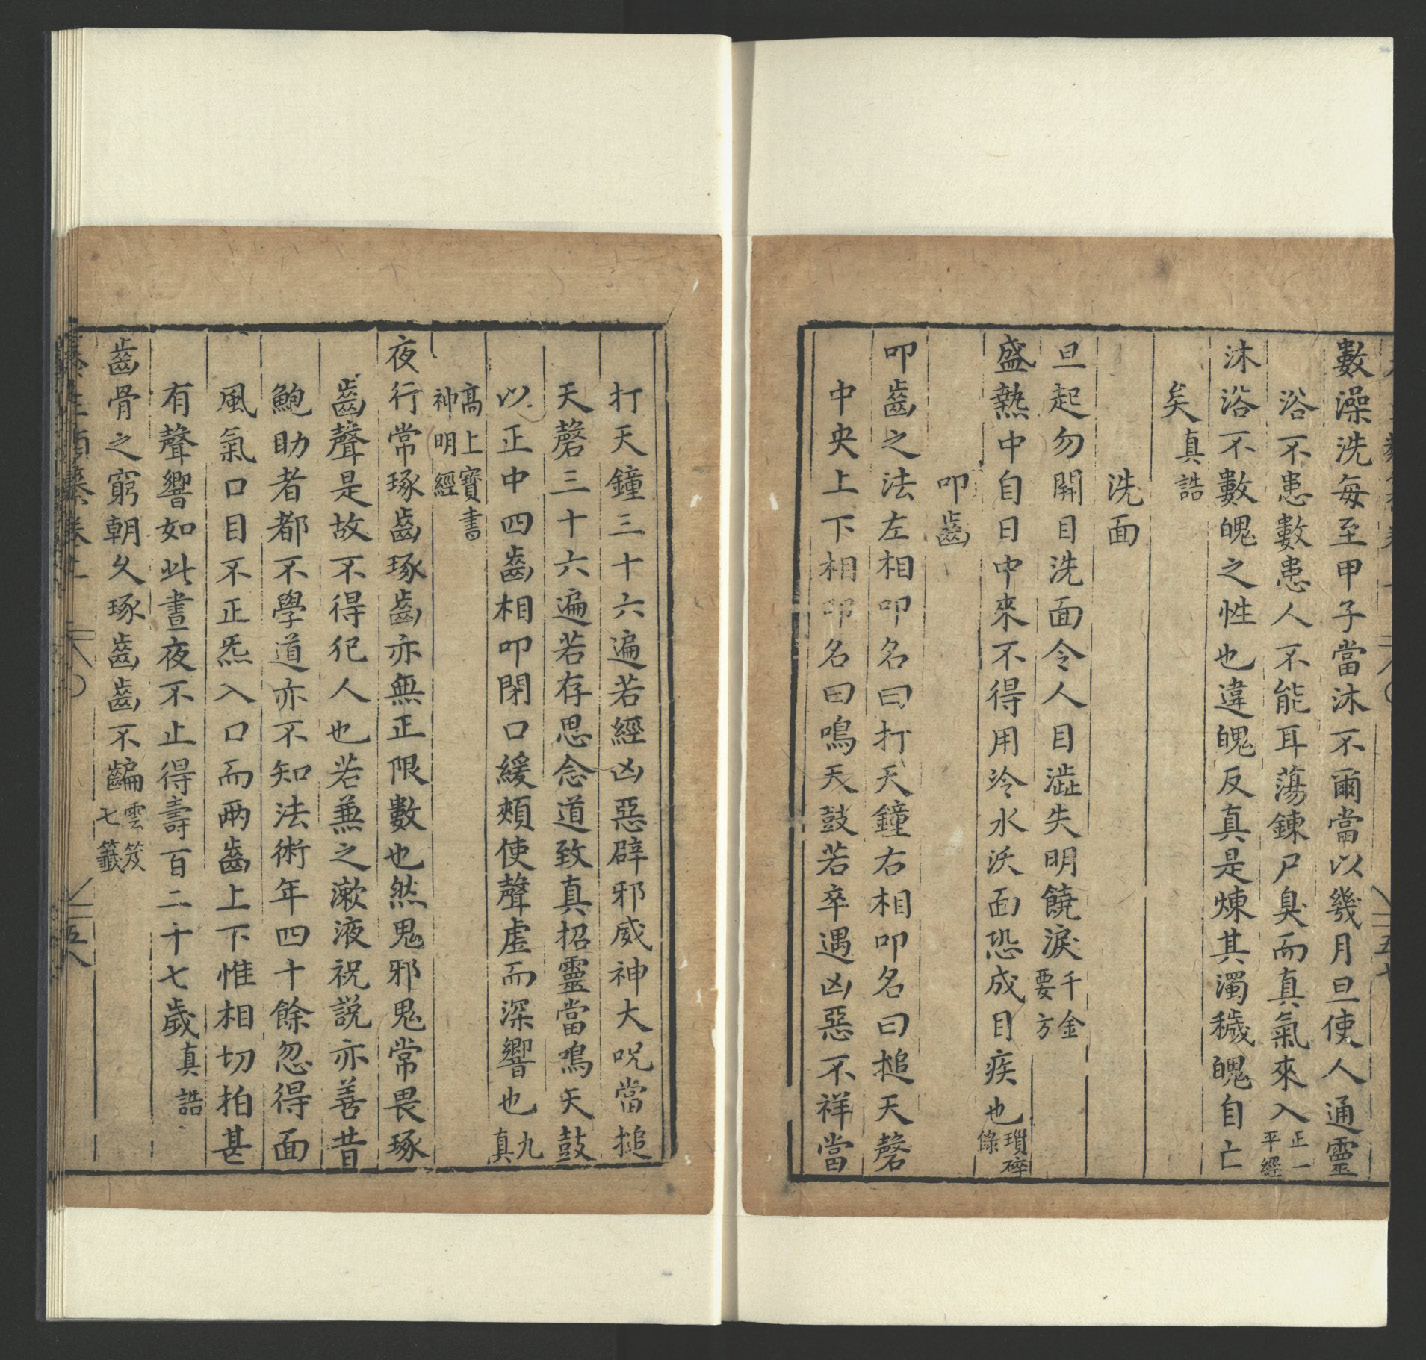 數澡洗每至甲子當沐不爾當以幾月旦使人通靈
浴不患數患人不能耳蕩鍊尸臭而真氣來入正一平經
沐浴不數魄之性也違魄反真是煉其濁穢魄自亡
矣真誥
洗面
旦起勿開目洗面令人目澁失明饒淚千金要方
盛熱中自日中來不得用冷水沃面恐成目疾也瑣碎錄
叩齒
叩齒之法左相叩名曰打天鐘右相叩名曰搥天磬
中央上下相叩名曰鳴天鼓若卒遇凶惡不祥當
打天鐘三十六遍若經凶惡辟邪威神大呪當搥
天磬三十六遍若存思念道致真招靈當鳴天鼓
以正中四齒相叩閉口緩頰使聲虛而深響也九真
高上寶書神明經
夜行常琢齒琢齒亦無正限數也然鬼邪鬼常畏琢
齒聲是故不得犯人也若兼之漱液祝説亦善昔
鮑助者都不學道亦不知法術年四十餘忽得面
風氣口目不正炁入口而兩齒上下惟相切拍甚
有聲響如此晝夜不止得壽百二十七歲真誥
齒骨之窮朝夂琢齒齒不齲雲笈七籤